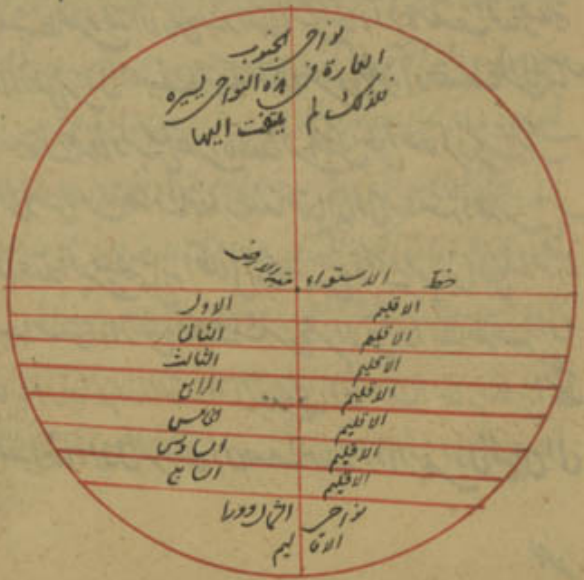 نواحى الجنوب
العمارة فى هذه النواحى يسيره
فلذلك لم يلتفت اليها
خط الاستواء قبة الارض
الاقليم الاول
الاقليم الثانى
الاقليم الثالث
الاقليم الرابع
الاقليم الخامس
الاقليم السادس
الاقليم السابع
نواحى الشمال وورا
الاقاليم